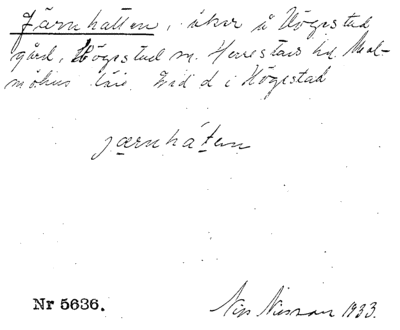 Järnhatten, åker å Högestad
gård, Högestad sn. Herrestads hd. Mal-
möhus län. Ljud d i Högestad
jærnháten
Nr 5636.
Nils Nilsson 1933.